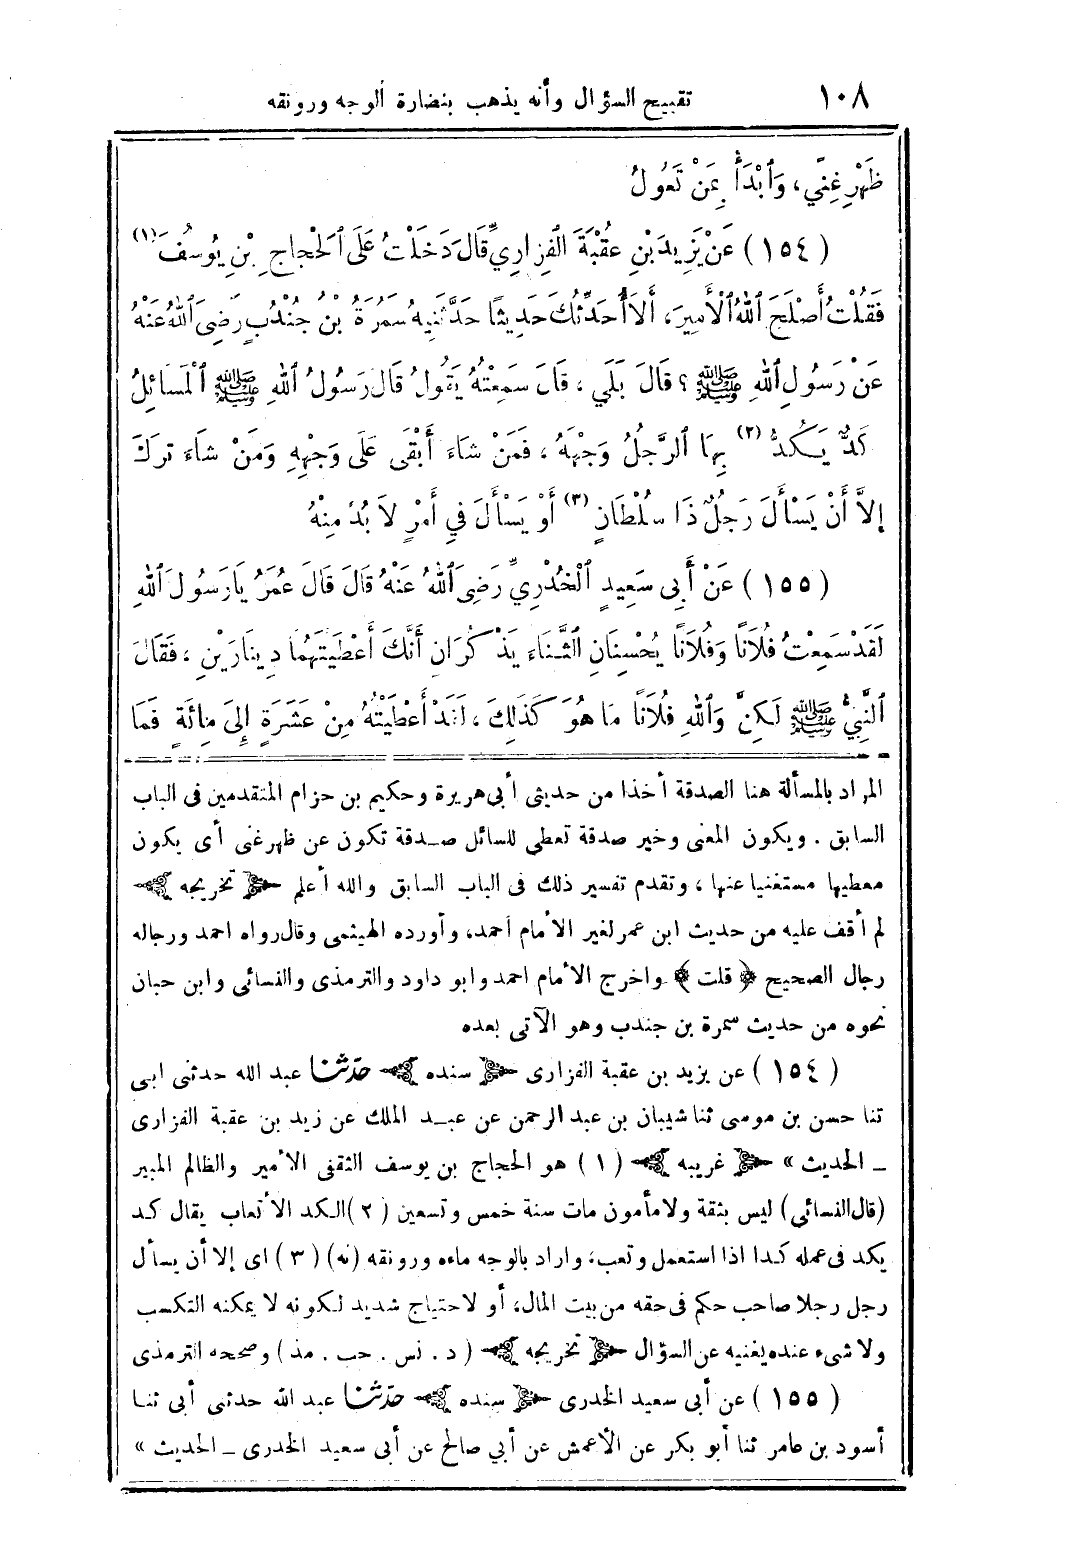 ١٠٨ تقبيح السؤال وأنه يذهب بنضارة ألوجه ورونقه
ظَهْرِ غِنًى، وَٱبْدَأْ بِمَنْ تَعُولُ
(١٥٤) عَنْ يَزِيدَ بْنِ عُقْبَةَ الْفِزَارِيِّ قَالَ دَخَلْتُ عَلَى ٱلْحَجَّاجِ بْنِ يُوسُفَ (١)
فَقُلْتُ أَصْلَحَ ٱللهُ ٱلْأَمِيرَ، أَلاَ أُحَدِّثُكَ حَدِيثًا حَدَّثَنِيهِ سَمُرَةُ بْنُ جُنْدُبٍ رَضِىَ ٱللهُ عَنْهُ
عَنْ رَسُولِ ٱللهِ ﷺ ؟ قَالَ بَلَي ، قَالَ سَمِعْتُهُ يَقُولُ قَالَ رَسُولُ ٱللهِ ﷺ ٱلْمَسَائِلُ
كَدٌّ يَكُدُّ (٢) بِهَا ٱلرَّجُلُ وَجْهَهُ ، فَمَنْ شَاءَ أَبْقَى عَلَى وَجْهِهِ وَمَنْ شَاءَ تَرَكَ
إِلاَّ أَنْ يَسْأَلَ رَجُلٌ ذَا سُلْطَانٍ (٣) أَوْ يَسْأَلَ فِي أَمْرٍ لاَ بُدَّ مِنْهُ
(١٥٥) عَنْ أَبِى سَعِيدٍ ٱلْخُدْرِيِّ رَضِىَ ٱللهُ عَنْهُ قَالَ قَالَ عُمَرُ يَا رَسُولَ ٱللهِ
لَقَدْ سَمِعْتُ فُلَانًا وَفُلَانًا يُحْسِنَانِ ٱلثَّنَاءَ يَذْكُرَانِ أَنَّكَ أَعْطَيْتَهُمَا دِينَارَيْنِ ، فَقَالَ
ٱلنَّبِيُّ ﷺ لَكِنَّ وَٱللهِ فُلَانًا مَا هُوَ كَذَلِكَ ، لَقَدْ أَعْطَيْتُهُ مِنْ عَشَرَةٍ إِلَى مِائَةٍ فَمَا
المراد بالمسألة هنا الصدقة أخذا من حديثى أبى هريرة وحكيم بن حزام المتقدمين فى الباب
السابق . ويكون المعنى وخير صدقة تعطى للسائل صـدقة تكون عن ظهر غنى أى يكون
معطيها مستغنيا عنها ، وتقدم تفسير ذلك فى الباب السابق والله أعلم ﴿تخريجه﴾
لم أقف عليه من حديث ابن عمر لغير الأمام أحمد، وأورده الهيثمى وقال رواه احمد ورجاله
رجال الصحيح ﴿قلت﴾ واخرج الأمام احمد وابو داود والترمذى والنسائى وابن حبان
نحوه من حديث سمرة بن جندب وهو الآتى بعده
(١٥٤) عن يزيد بن عقبة الفزارى ﴿سنده﴾ حدّثنا عبد الله حدثنى ابى
ثنا حسن بن موسى ثنا شيبان بن عبد الرحمن عن عبـد الملك عن زيد بن عقبة الفزارى
ـ الحديث » ﴿غريبه﴾ (١) هو الحجاج بن يوسف الثقفى الأمير والظالم المبير
(قال النسائى) ليس بثقة ولا مأمون مات سنة خمس وتسعين (٢) الكد الأتعاب يقال كد
يكد فى عمله كدا اذا استعمل وتعب، واراد بالوجه ماءه ورونقه (نه) (٣) اى إلا أن يسأل
رجل رجلا صاحب حكم فى حقه من بيت المال، أو لاحتياج شديد لكونه لا يمكنه التكسب
ولا شىء عنده يغنيه عن السؤال ﴿تخريجه﴾ (د . نس . حب . مذ) وصححه الترمذى
(١٥٥) عن أبى سعيد الخدرى ﴿سنده﴾ حدّثنا عبد الله حدثنى أبى ثنا
أسود بن عامر ثنا أبو بكر عن الأعمش عن أبي صالح عن أبى سعيد الخدرى ـ الحديث »